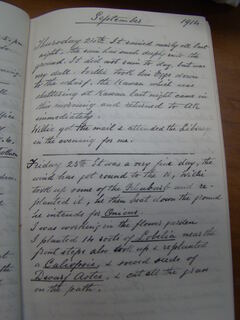 September 1914
Thursday 24th It rained nearly all last
night. the rain has sunk deeply into the
ground. It did not rain to day, but was
very dull. Willie took his Eggs down
to the wharf, the Kawau which was
sheltering at Kawau last night came in
this morning and returned to Ak
immediately
Willie got the mail & attended the Library
in the evening for me.
Friday 25th It was a very fine day, the
wind has got round to the W, Willie
took up some of the Rhubarb and re-
planted it, he then dug down the ground
he intends for Onions.
I was working in the flower garden
I planted 14 roots of Lobelia near the
front steps also took up & replanted
a Caliopsis, & sowed seeds of
Dwarf Aster, & cut all the grass
on the path.